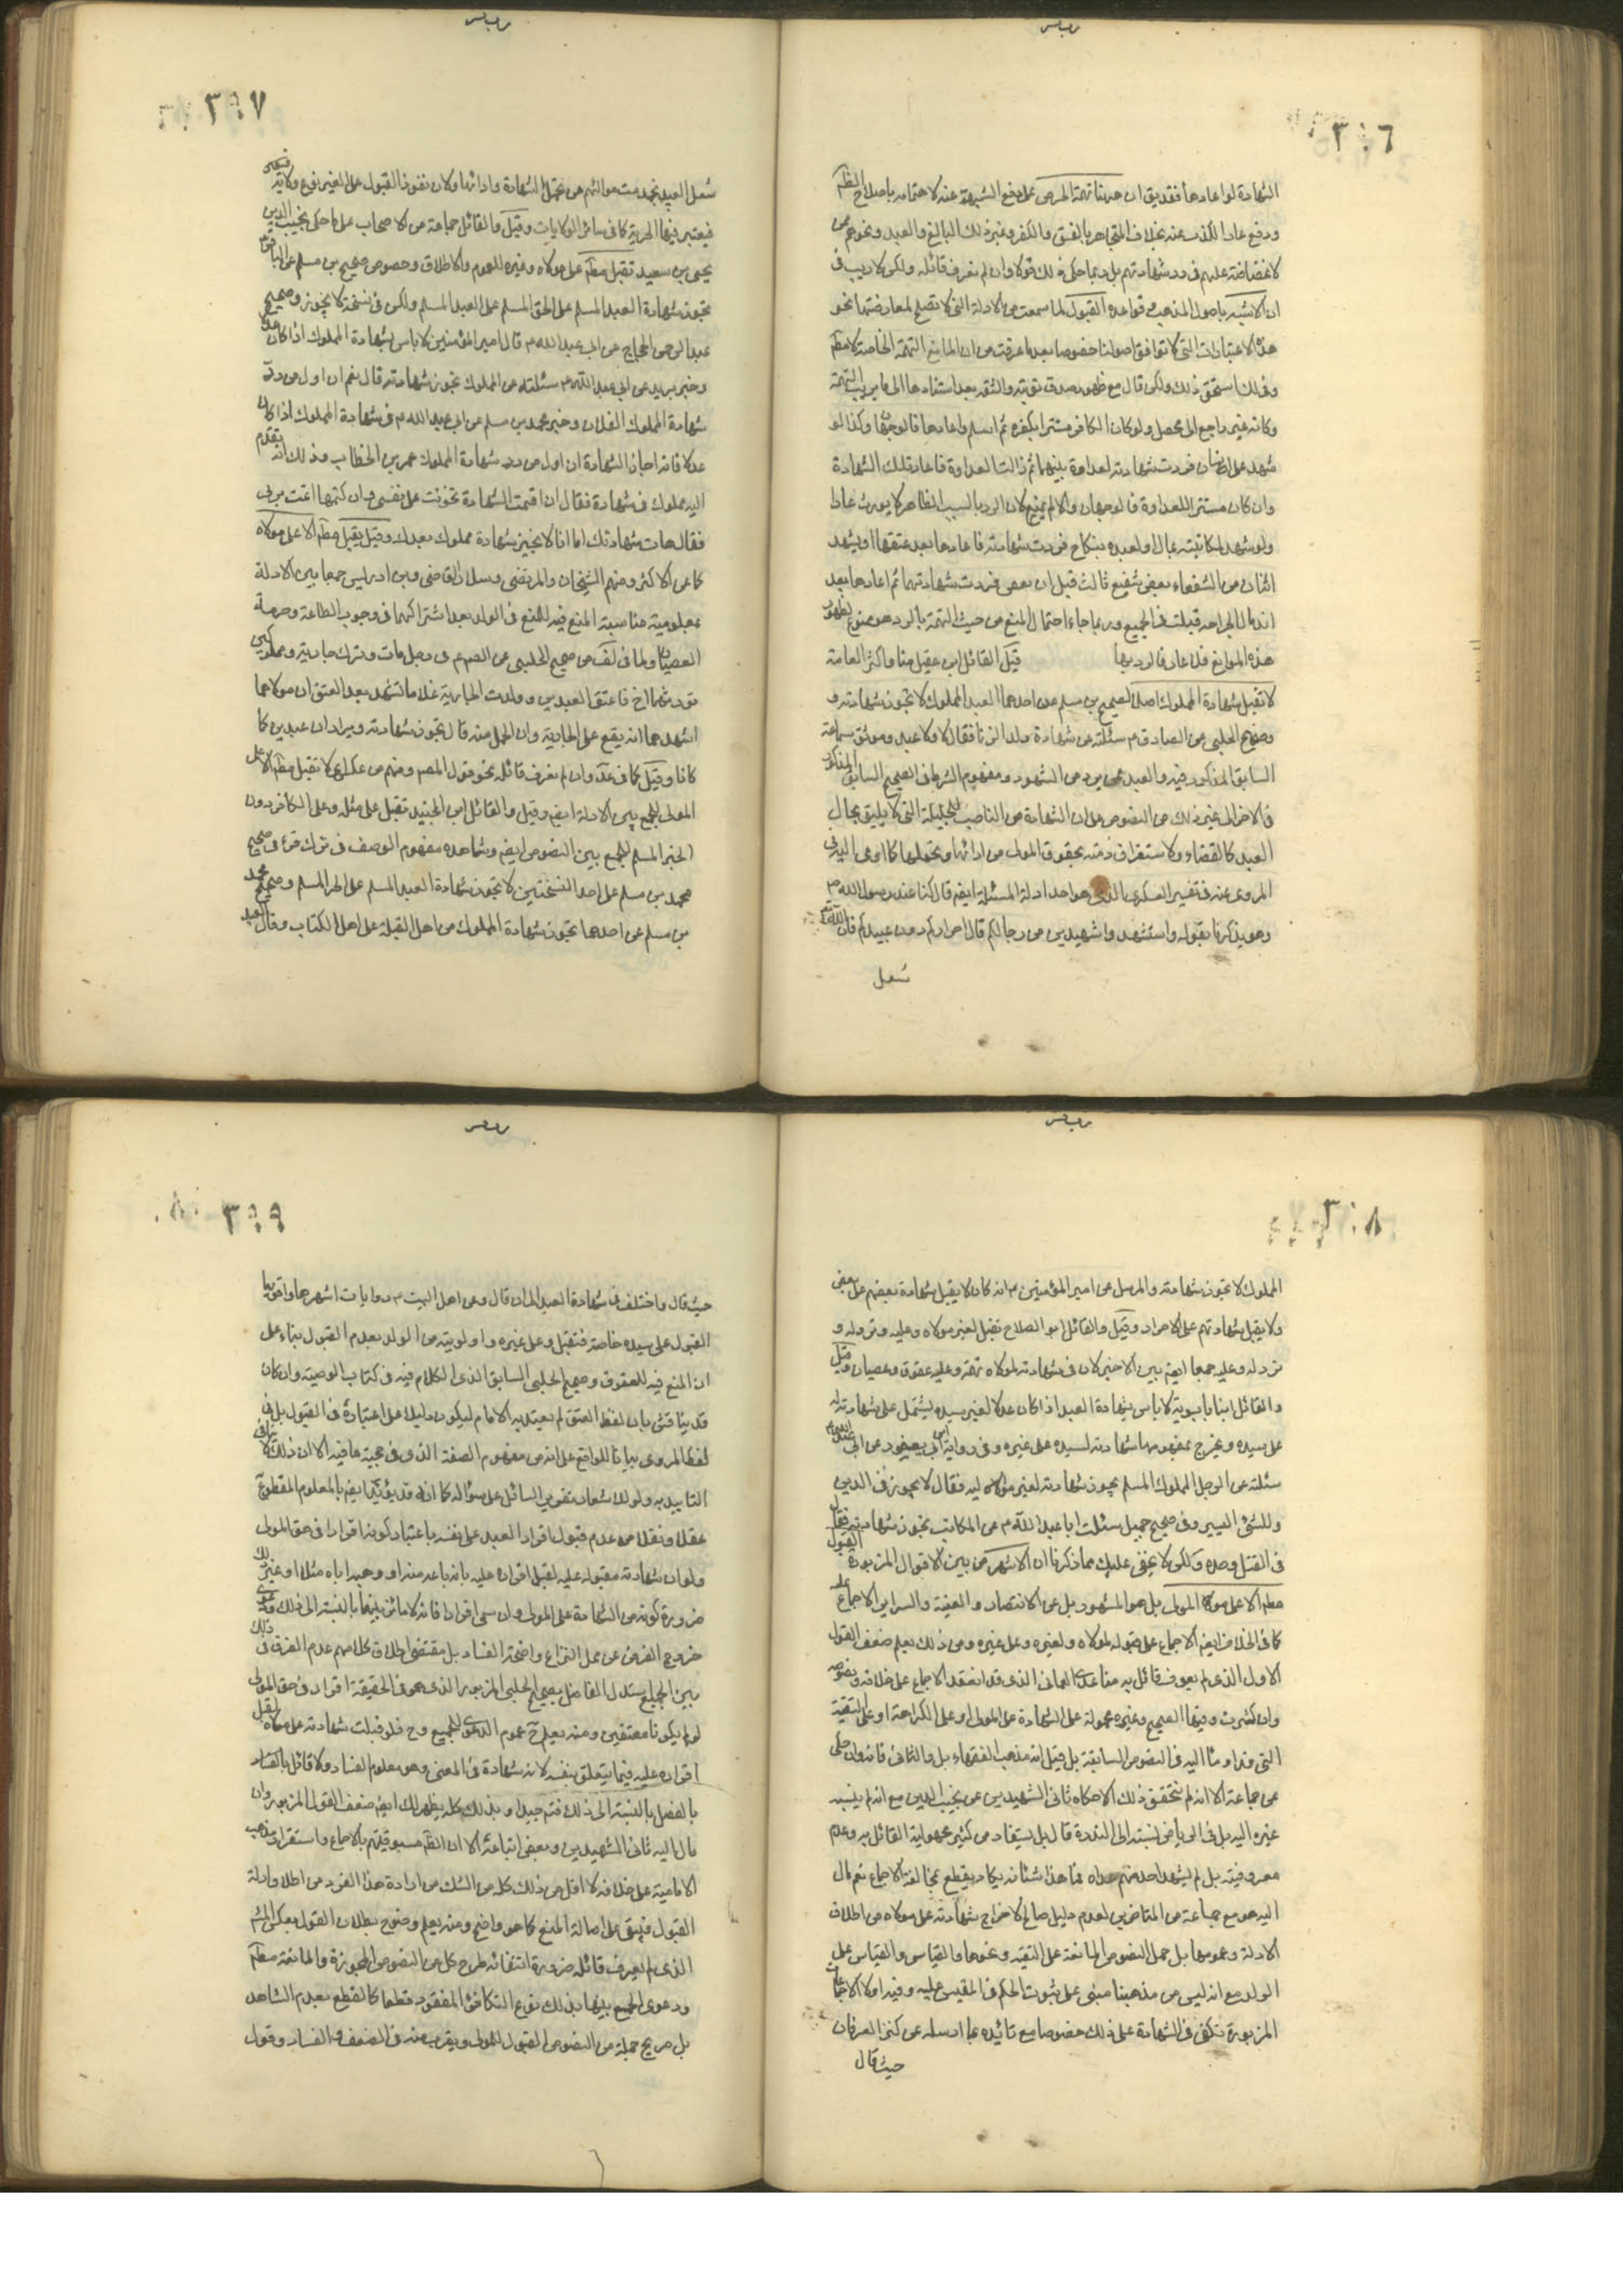 ٣٠٦
الشهادة لو اعادها فقديق ان حدينا تهمة الحرص على دفع الشبهة عنه لاهتمامه باصلاح الظم
ودفع عار الكذب عنه بخلاف المتجاهر بالفسق والكفر وغير ذلك البالغ والعبد ونحوهم
لا غضاضة عليهم فى رد شهادتهم بل ربما حكى ذلك قولا وان لم نعرف قائله ولكن لا ريب فى
ان الاشبه باصول المذهب وقواعده القبول لما سمعت من الادلة التى لا تصلح لمعارضتها نحو
هذه الاعتبارات التى لا توافق اصولنا خصوصا بعد ما عرفت من ان المانع التهمة الخاصة لا مطم
وكانه غير راجع الى محصل ولو كان الكافر مستترا بكفره ثم اسلم واعادها فالوجهان وكذا لو
شهد على انسان فردت شهادته لعداوة بينهما ثم زالت العداوة فاعاد تلك الشهادة
وان كان مستترا للعداوة فالوجهان والا لم يمنع لان الرد بالسبب الظاهر لا يورث عارا
ولو شهد لمكاتبته بمال او لعبده بنكاح فردت شهادته فاعادها بعد عتقها او شهد
اثنان من الشفعاء بعفو شفيع ثالث قبل ان يعفو فردت شهادتهما ثم اعادها بعد
اندمال الجراحه قبلت فى الجميع وربما جاء احتمال المنع من حيث التهمة بالرد هو ممنوع لظهور
هذه الموانع فلا عار فى الرد بها قيل القائل ابن عقيل منا واكثر العامة
لا تقبل شهادة المملوك اصلا لصحيح بن مسلم عن احدهما العبد المملوك لا تجوز شهادته و
وصحيح الحلبى عن الصادق م سئلته عن شهادة ولد الزنا فقال لا ولا عبد وموثق سماعة
السابق المذكور فيه والعبد ممن يرد من الشهود ومفهوم الشرط فى الصحيح السابق المذكور
فى الاخر الى غير ذلك من النصوص على ان الشهادة من المناصب الجليلة التى لا يليق بحال
العبد كالقضاء ولاستغراق ذمته بحقوق المولى من ادائها وتحملها كما اوعى اليه فى
المروى عنه فى تفسير العسكرى الذى هو احد ادلة المسئلة ايضم قال كنا عند رسول الله ص
وهو يذكرنا بقوله واستشهدوا شهيدين من رجالكم قال احراركم دون عبيدكم فان الله تعم
شغل
٣٠٧
شغل العبيد بخدمت مواليهم عن تحمل الشهادة وادائها ولان نفوذ القبول على الغير نوع ولاية
فيعتبر فيها الحرية كما فى سائر الولايات وقيل والقائل جماعة من الاصحاب على ما حكى نجيب الدين
يحيى بن سعيد تقبل مطم على مولاه وغيره للعموم والاطلاق وخصوص صحيح بن مسلم عن الباقر
تجوز شهادة العبد المسلم على الحر المسلم على العبد المسلم ولكن فى نسخة لا يجوز وصحيح
عبد الرحمن الحجاج عن ابى عبد الله م قال امير المؤمنين لا باس بشهادة المملوك اذا كان عدلا
وخبر بريد عن ابى عبد الله م سئلته عن المملوك تجوز شهادته قال نعم ان اول من رد
شهادة المملوك الفلان وخبر محمد بن مسلم عن ابى عبد الله م فى شهادة المملوك اذا كان
عدلا فانه اجاز الشهادة ان اول من رد شهادة المملوك عمر بن الخطاب وذلك انه تقدم
اليه مملوك فى شهادة فقال ان اقمت الشهادة تخوفت على نفسى وان كتمتها اثمت بربى
فقال هات شهادتك اما انا لا نجيز شهادة مملوك بعدك وقيل يقبل مطم الا على مولاه
كما عن الاكثر ومنهم الشيخان والمرتضى وسلار والقاضى وبن ادريس جمعا بين الادلة
بمعلومية مناسبة المنع فيه للمنع فى الولد بعد اشتراكهما فى وجوب الطاعة وحرمة
العصيان ولما فى لف من صحيح الحلبى عن الصم م فى رجل مات وترك جارية ومملوكين
فورثهما اخ فاعتق العبدين وولدت الجارية غلاما فشهد بعد العتق ان مولاهما
اشهدهما انه يقع على الجارية وان الحمل منه قال تجوز شهادته ويردان عبدين كما
كانا وقيل كما فى عد وان لم نعرف قائله نحو قول المصم ومنهم من عكس لا تقبل مطم الا على
المولى للجمع بين الادلة ايضم وقيل والقائل ابن الجنيد تقبل على مثله وعلى الكافر دون
الحر المسلم للجمع بين النصوص ايضم وشاهده مفهوم الوصف فى ترك حر فى صحيح
محمد بن مسلم على احد النسختين لا تجوز شهادة العبد المسلم على الحر المسلم وصحيح محمد
بن مسلم عن احدهما تجوز شهادة المملوك من اهل القبلة على اهل الكتاب وقال العبد
٣٠٨
المملوك لا تجوز شهادته والمرسل عن امير المؤمنين م انه كان لا يقبل شهادة بعضهم على بعض
ولا يقبل شهادتهم على الاحرار وقيل والقائل ابو الصلاح تقبل لغير مولاه وعليه وترد له و
ترد له وعليه جمعا ايضم بين الاخبر لان فى شهادته لمولاه تهمة وعليه عقوق وعصيان وقيل
والقائل ابنا بابويه لا باس بشهادة العبد اذا كان عدلا لغير سيده يشتمل على شهادته له
على سيده ويخرج بمفهومها شهادته لسيده على غيره وفى رواية ابن ابى يعفور عن ابى عبد الله م
سئلته عن الرجل المملوك المسلم يجوز شهادته لغير مواليه فقال لا يجوز فى الدين
وللشئ اليسير وفى صحيح جميل سئلت ابا عبد الله م عن المكاتب تجوز شهادته فقال
فى القتل وحده ولكن لا يخفى عليك مما ذكرنا ان الاشهر من بين الاقوال المزبورة القبول
مطم الا على المولى بل هو المشهور بل عن الانتصار والغنية والسرائر الاجماع عليه
كما فى الخلاف ايضم الاجماع على قبوله لمولاه ولغيره وعلى غيره ومن ذلك يعلم ضعف القول
الاول الذى لم يعرف قائل به منا عدا العمانى الذى قد انعقد الاجماع على خلافه ونصوصه
وان كثرت وفيها الصحيح وغيره محمولة على الشهادة على المولى او على الكراهة او على التقية
التى قد اومأ اليه فى النصوص السابقة بل قيل انه مذهب الفقهاء بل والثانى فانه وان حكى
عن جماعة الا انه لم نتحقق ذلك الا حكاه ثانى الشهيدين عن نجيب الدين مع انه لم ينسبه
غيره اليه بل فى الرياض نسبته الى الندرة قال بل يستفاد من كثير مجهولية القائل به وعدم
معروفيته بل لم يشهد احد منهم عداه فما هذا شانه يكاد يقطع بمخالفته الاجماع نعم مال
اليه هو مع جماعة من المتاخرين لعدم دليل صالح لاخراج شهادته على مولاه من اطلاق
الادلة وعمومها بل حمل النصوص المانعة على التقيه ونحوها والقياس والقياس على
الولد مع انه ليس من مذهبنا مبنى على ثبوت الحكم فى المقيس عليه وفيه اولا الاجماعات
المزبورة تكفى فى الشهادة على ذلك خصوصا مع تائيده بما ارسله عن كنز العرفان
حيث قال
٣٠٩
حيث قال واختلف فى شهادة العبد الى ان قال وعن اهل البيت م روايات اشهرها واقويها
القبول على سيده خاصة فتقبل وعلى غيره واولويته من الولد بعدم القبول بناء على
ان المنع فيه للعقوق وصحيح الحلبى السابق الذى الكلام فيه فى كتاب الوصية وان كان
قد يناقش بان لفظ العتق لم يعتد به الامام ليكون دليلا على اعتباره فى القبول بل فى
لفظ المروى بيانا للواقع على انه من مفهوم الصفة الذى فى حجية ما فيه الا ان ذلك لا ينافى
التاييد به ولو لاشعار تقرير السائل على سؤاله كما انه قد يؤيد ايضم بالمعلوم المقطوع
عقلا ونقلا من عدم قبول اقرار العبد على نفسه باعتبار كونه اقرارا فى حق المولى
ولو ان شهادته مقبوله عليه لقبل اقراره عليه بانه باعه منه او وهبه اباه مثلا او غير ذلك
ضرورة كونه من الشهادة على المولى وان سمى اقرارا فانه لا مائز بينهما بالنسبة الى ذلك ودعوى
خروج الفرض عن محل النزاع واضحة الفساد بل مقتضى اطلاق كلامهم عدم الفرق فى ذلك
بين الجميع بل ستدل الفاضل بصحيح الحلبى المزبور الذى هو فى الحقيقة اقرار فى حق المولى
لو لم يكونا معتقين ومنه يعلم ح عموم الدعوى للجميع وح فلو قبلت شهادته على مولاه لقبل
اقراره عليه فيما يتعلق بنفسه لانه شهادة فى المعنى وهو معلوم الفساد ولا قائل بالفساد
بالفصل بالنسبة الى ذلك فتم جيدا وبذلك كله يظهر لك ايضم ضعف القول المزبور وان
مال اليه ثانى الشهيدين وبعض اتباعه الا ان الظم مسبوقيتهم بالاجماع واستقرار مذهب
الامامية على خلافه لا اقل من ذلك كله من الشك من ارادة هذا الفرد من اطلاق ادلة
القبول فيبقى على اصالة المنع كما هو واضح ومنه يعلم وضوح بطلان القول بعكس المشهور
الذى لم يعرف قائله ضرورة اقتضائه طرح كل من النصوص المجوزة والمانعة مطم
ودعوى الجمع بينها بذلك فرع التكافؤ المفقود قطعا كالقطع بعدم الشاهد
بل صريح جملة من النصوص القبول للمولى ويقرب منه فى الضعف والفساد وقول